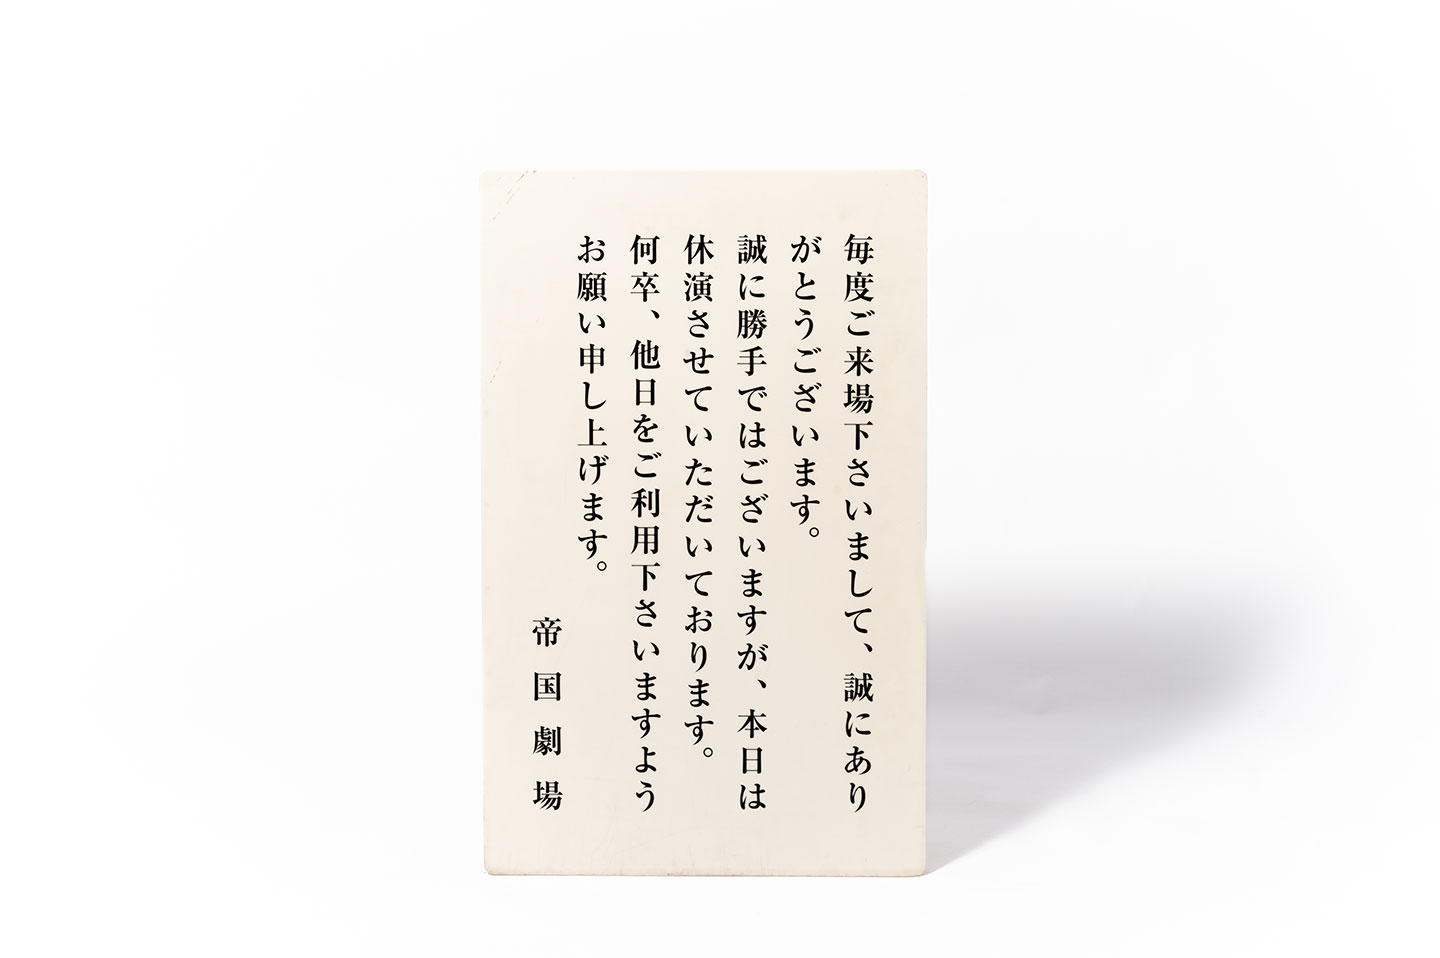 毎度ご来場下さいまして、誠にあり
がとうございます。
誠に勝手ではございますが、本日は
休演させていただいております。
何卒、他日をご利用下さいますよう
お願い申し上げます。
帝国劇場